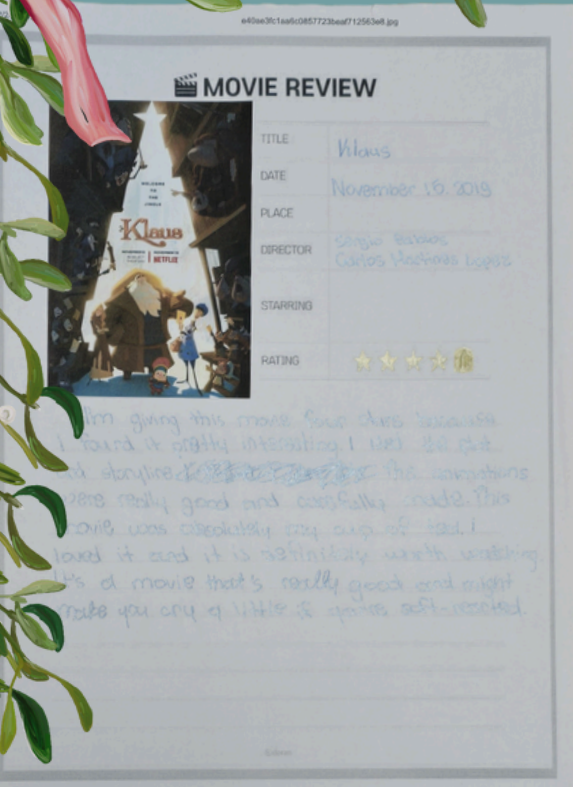 e40ae3fc1aa6c0857723beaf712563e8.jpg
MOVIE REVIEW
WELCOME
TO
THE
JINGLE
Klaus
NETFLIX
TITLE
Klaus
DATE
November 15, 2019
PLACE
DIRECTOR
Sergio Pablos
Carlos Martínez López
STARRING
RATING
I'm giving this movie four stars because
I found it pretty interesting. I liked the plot
and storyline. The animations
were really good and carefully made. This
movie was absolutely my cup of tea. I
loved it and it is definitely worth watching.
It's a movie that's really good and might
make you cry a little if you're soft-hearted.